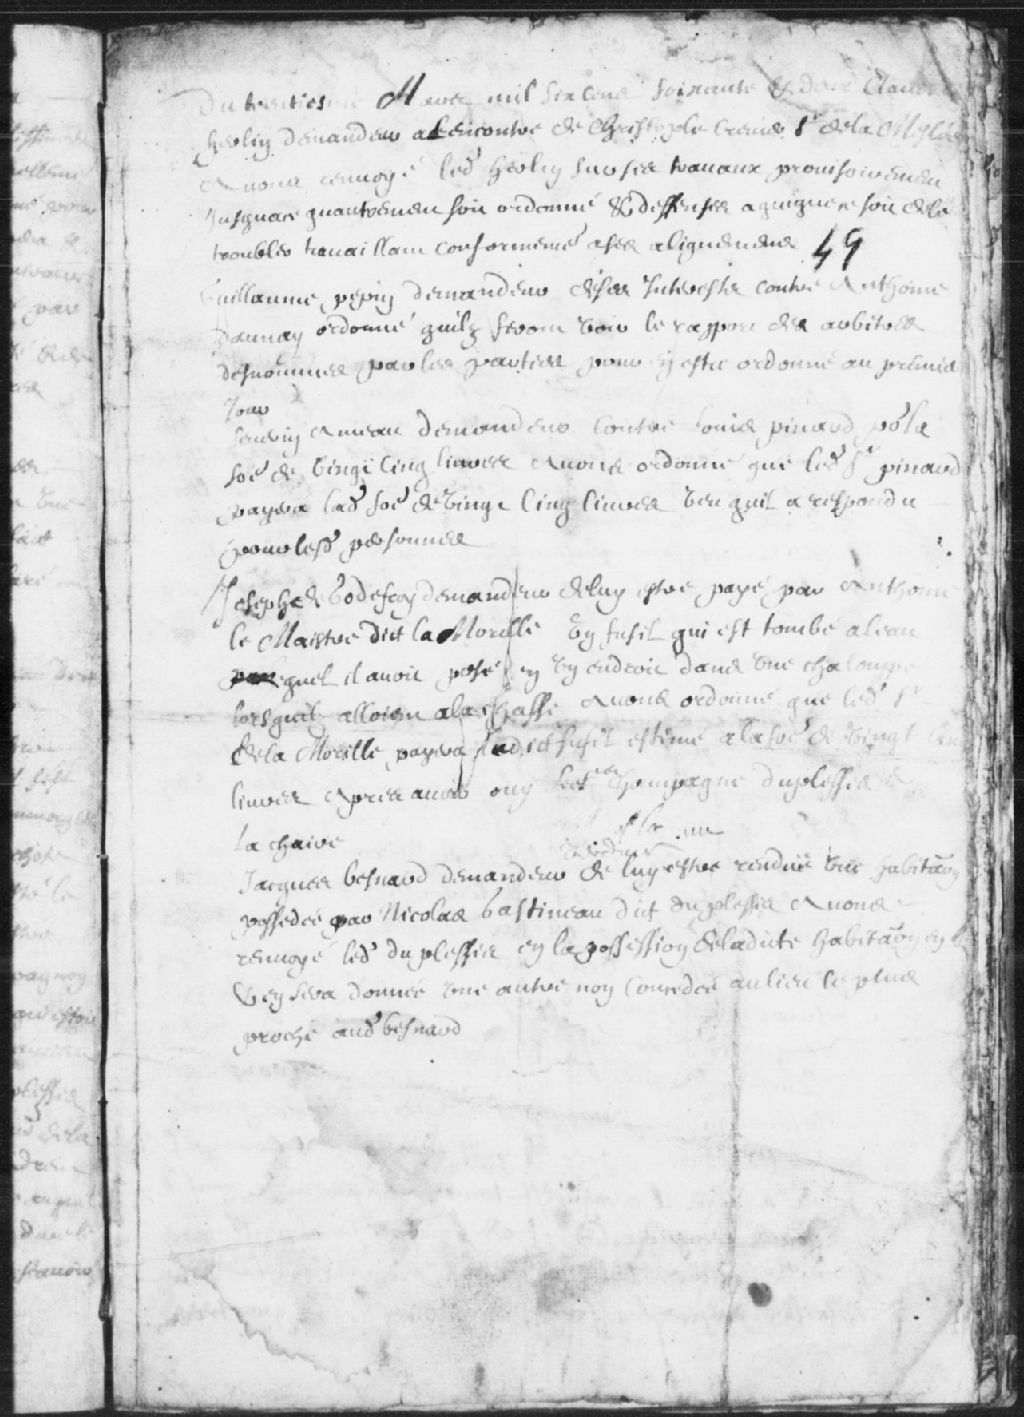 Du treiziesme Mars mil six cens soixante & deux Claude
herlin demandeur alencontre de Christophle Crevier Sr dela Meslée
Avons renvoyé led herlin sur ses travaux provisoirement
Jusquace quautrement soit ordonné & deffenses a quique ce soit dele
troubler travaillant conformemt a ses alignemens
49
Guillaume pepin demandeur de ses Interests contre Anthoine
Daunay ordonné quilz feront voir le rapport des arbitres
desnommes par les parties pour y estre ordonné au premier
Jour
Severin Ameau demandeur contre Louis pinard po la
soe de vingt cinq livres Avons ordonné que led Sr pinard
payera lad soe de vingt cinq livres veu quil a respondu
pour lesd personnes
Joseph de Godefroy demandeur deluy estre payé par Anthoine
le Maistre dit la Morille un fusil qui est tombé a leau
lequel il avoit posé en un endroit dans une chaloupe
lorsquilz alloient ala chasse Avons ordonné que led Sr
dela Morille payera ledict fusil estimé ala soe de vingt
livres Apres avoir ouy Champagne duplessis &
la chaire
Jacques besnard demandeur de luy estre rendue une habitaon
possedée par Nicolas bastineau dit du plessis Avons
renvoyé led du plessis en la possession deladicte habitaon
& en sera donnée une autre non concedée au lieu le plus
proche aud besnard